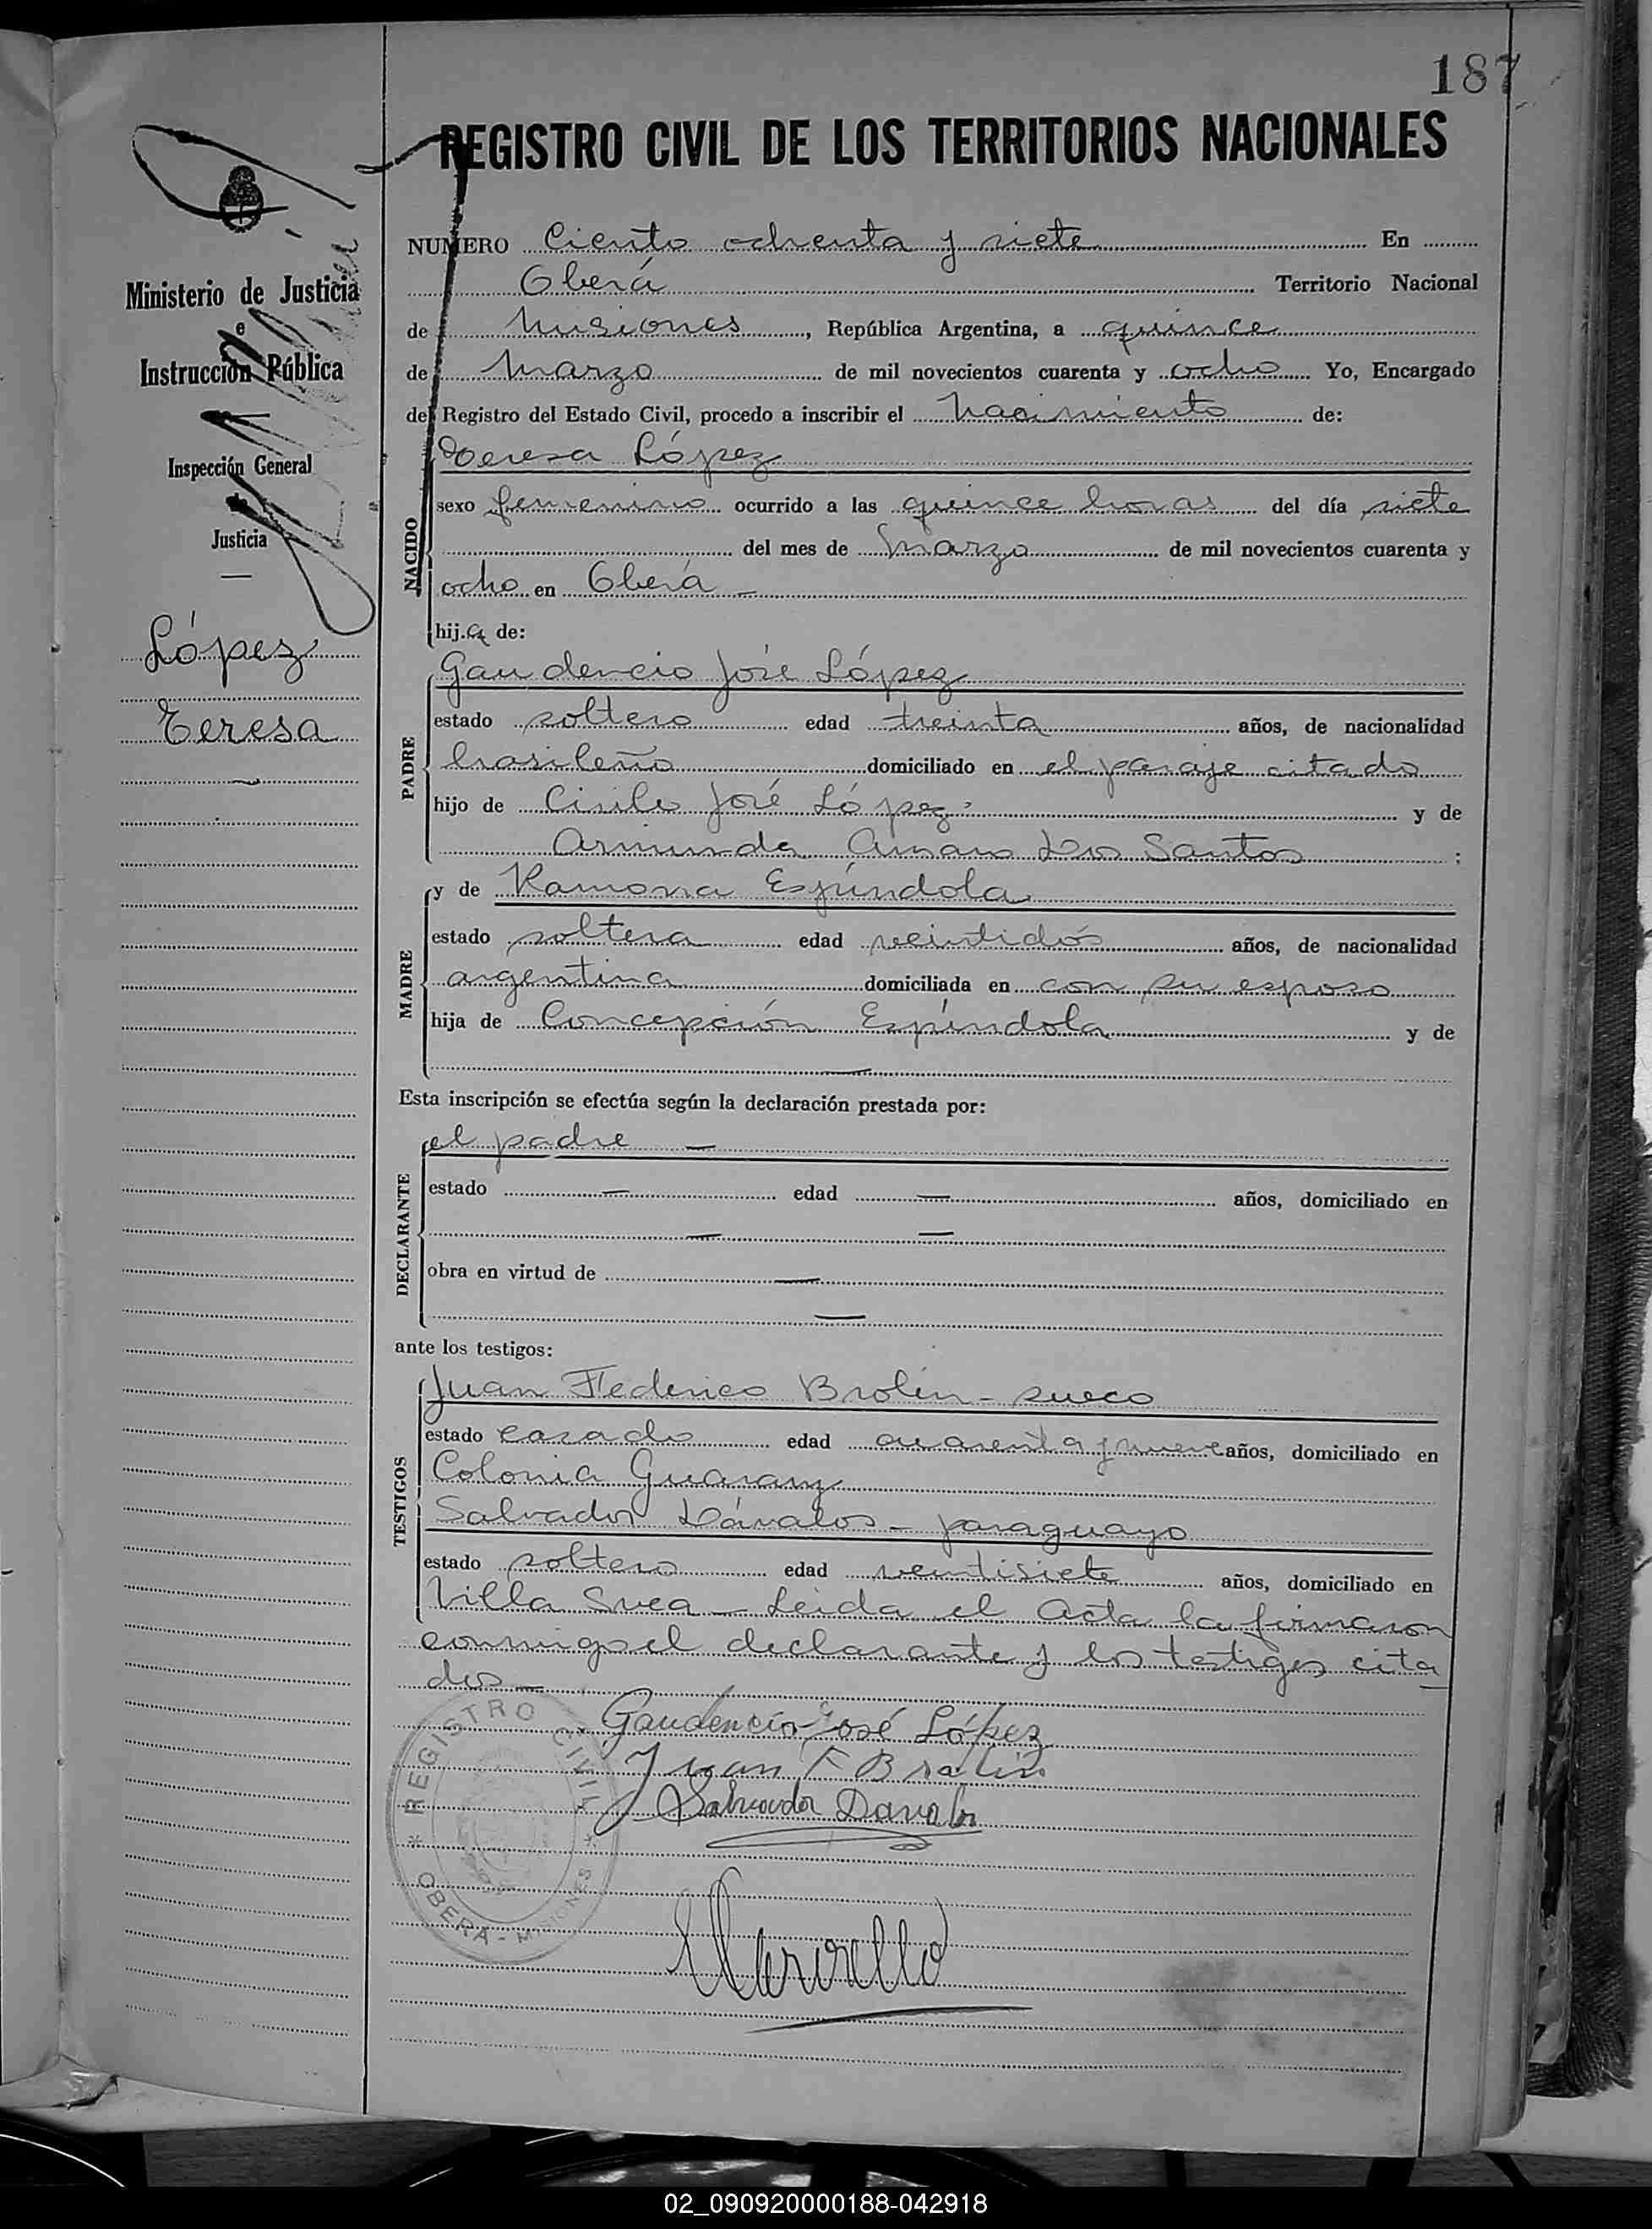 187
REGISTRO CIVIL DE LOS TERRITORIOS NACIONALES
Ministerio de Justicia
e
Instrucción Pública
Inspección General
de
Justicia
López
Teresa
NUMERO Ciento ochenta y siete En
Oberá Territorio Nacional
de Misiones, República Argentina, a quince
de Marzo de mil novecientos cuarenta y ocho Yo, Encargado
del Registro del Estado Civil, procedo a inscribir el nacimiento de:
NACIDO
Teresa López
sexo femenino ocurrido a las quince horas del día siete
del mes de Marzo de mil novecientos cuarenta y
ocho en Oberá —
hij.a de:
PADRE
Gaudencio José López
estado soltero edad treinta años, de nacionalidad
brasileño domiciliado en el paraje citado
hijo de José López y de
Arminda Dos Santos ;
MADRE
y de Ramona Espíndola
estado soltera edad veintidós años, de nacionalidad
argentina domiciliada en con su esposo
hija de Concepción Espíndola y de
—
Esta inscripción se efectúa según la declaración prestada por:
DECLARANTE
el padre —
estado — edad — años, domiciliado en
— —
obra en virtud de —
—
ante los testigos:
TESTIGOS
Juan Federico Brolin - sueco
estado casado edad cuarenta y nueve años, domiciliado en
Colonia Guarany
Salvador Dávalos - paraguayo
estado soltero edad veintisiete años, domiciliado en
Villa Svea - Leida el Acta la firmaron
conmigo el declarante y los testigos cita
dos —
Gaudencio José López
Juan F Brolin
Salvador Davalos
REGISTRO CIVIL
OBERÁ - MISIONES
02_090920000188-042918